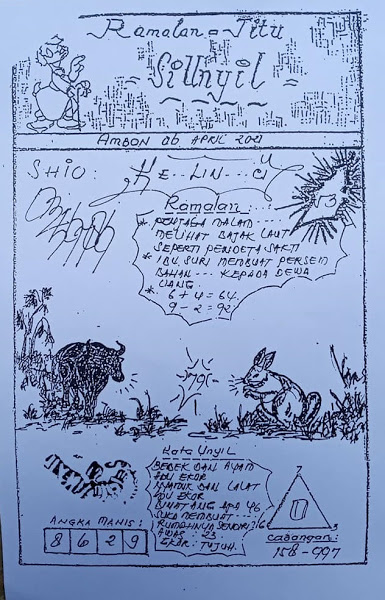 Ramalan = Titu
SiUnyil
AMBON 06 APRIL 2021
SHIO :
KE -- LIN -- CI
Ramalan :
* PENJAGA MALAM ---
MELIHAT BAJAK LAUT
SEPERTI PENDETA SAKTI
* IBU SURI MEMBUAT PERSEM
BAHAN --- KEPADA DEWA
UANG.
* 6 + 4 = 64.
9 - 2 = 92.
Kata Unyil
BEBEK DAN AYAM
ADU EKOR
NYAMUK DAN LALAT
ADU EKOR
BINATANG APA YG
SUKA MEMBUAT ---
RUMAHNYA SENDIRI?
AWAS : 23.
EKOR : TUJUH.
ANGKA MANIS :
8 6 2 9
7
6
Cabangan :
158 - 997